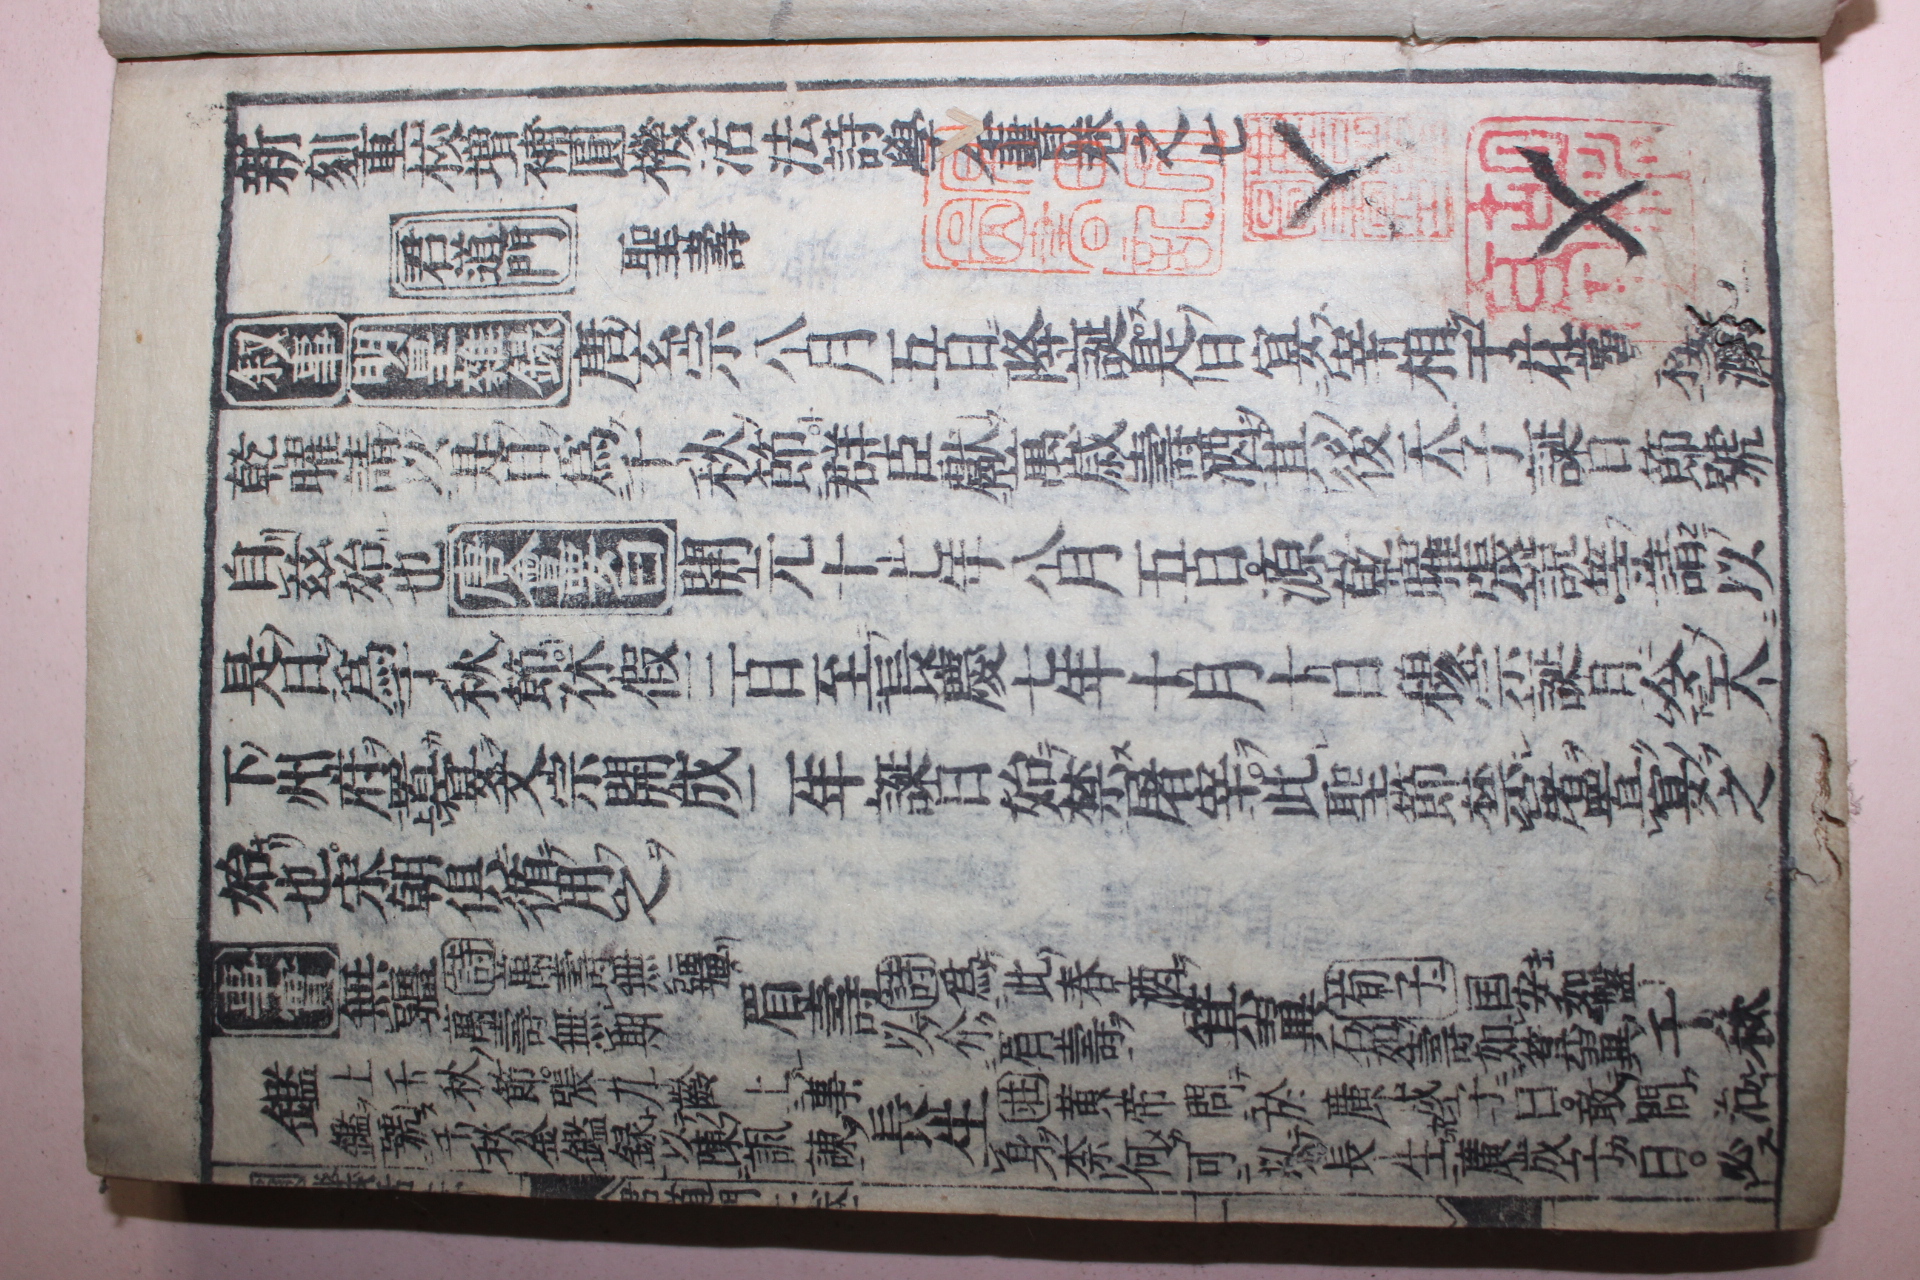 新刻重校增補圓機活法詩學全書卷之七
君道門 聖壽
叙事 明皇雜録 唐玄宗八月五日降誕是日宴宰相于花萼 源
乾曜請以是日爲千秋節群臣獻萬歳壽酒其後天子誕日節號
自兹始也 唐會要曰 開元十七年八月五日源乾曜張説等請以
是日爲千秋節休假三日至長慶七年十月十日穆宗誕日令天
下州府置宴文宗開成二年誕日始禁屠宰此聖節禁屠置宴之
始也宋朝俱循用之
事實 無疆 詩萬壽無疆
萬壽無期 眉壽 詩爲此春酒
以介眉壽 箕翼 荀子国安如盤
石如壽如箕翼 千秋
鑑 上千秋節張九齡上事
鑑號千秋金鑑録以陳諷諫 長生 莊黄帝問於廣成子曰敢問治
身奈何可以長生廣成子曰必